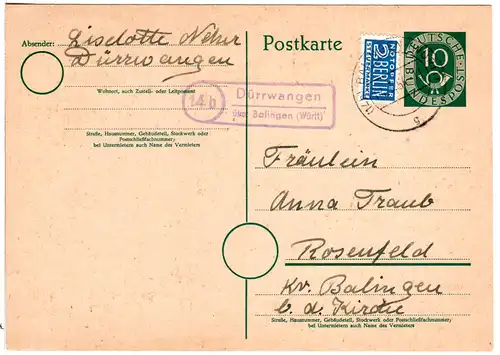 Absender: Liselotte Neher
Dürrwangen
Wohnort, auch Zustell- oder Leitpostamt
Straße, Hausnummer, Gebäudeteil, Stockwerk oder
Postschließfachnummer;
bei Untermietern auch Name des Vermieters
14b
Dürrwangen
über Balingen (Württ)
Postkarte
NOTOPFER
2 BERLIN
STEUERMARKE
DEUTSCHE
BUNDESPOST
10
Fräulein
Anna Traub
Rosenfeld
Kr. Balingen
b. d. Kirche
Straße, Hausnummer, Gebäudeteil, Stockwerk oder Postschließfachnummer;
bei Untermietern auch Name des Vermieters